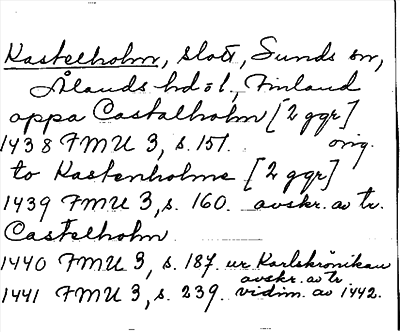 Kastelholm, slott, Sunds sn,
Ålands hd o l., Finland
oppa Castalholm [2 ggr]
1438 FMU 3, s. 151. orig.
to Kastenholme [2 ggr]
1439 FMU 3, s. 160. avskr. av tr.
Castelholm
1440 FMU 3, s. 187. ur Karlskrönikan
avskr. av tr.
1441 FMU 3, s. 239. vidim. av 1442.